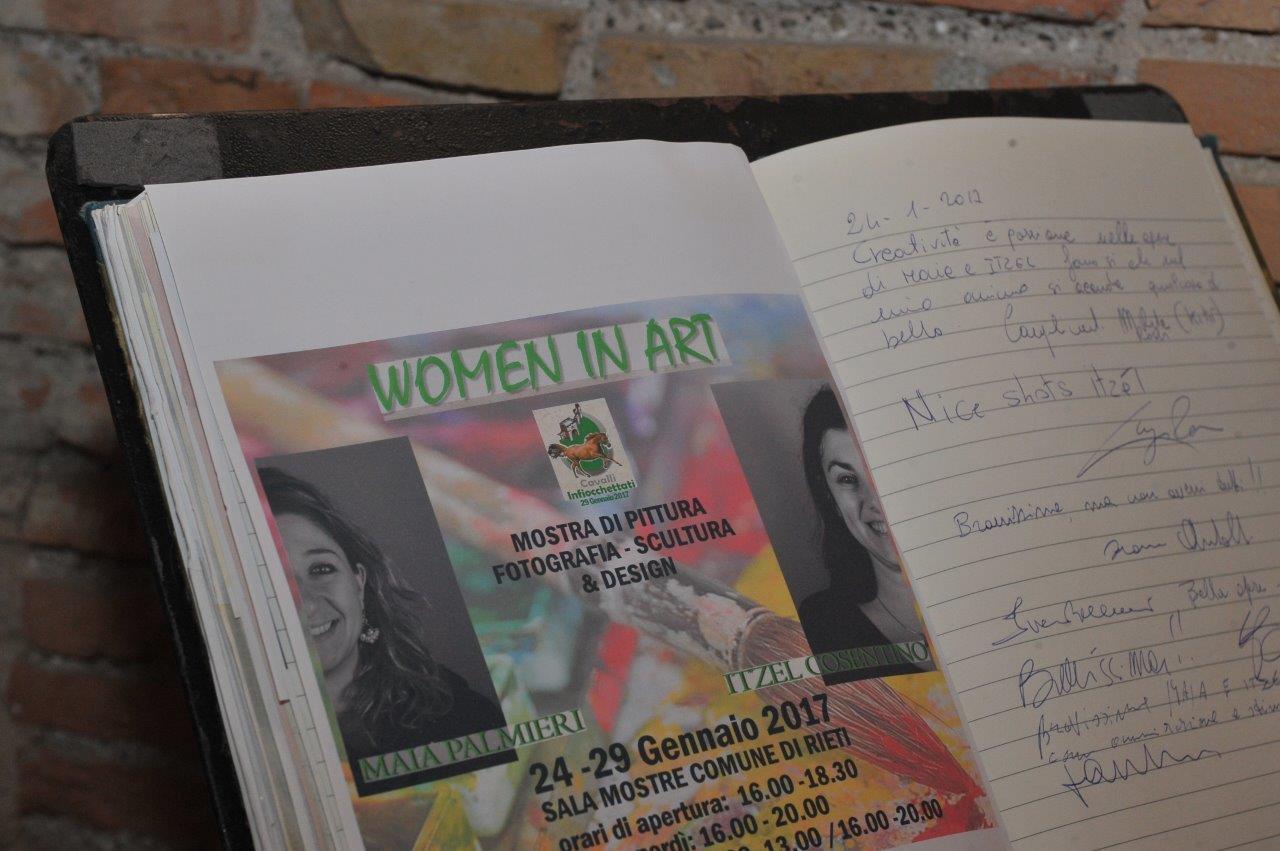 WOMEN IN ART
Cavalli
Infiocchettati
29 Gennaio 2017
MOSTRA DI PITTURA
FOTOGRAFIA - SCULTURA
& DESIGN
MAIA PALMIERI
ITZEL COSENTINO
24 -29 Gennaio 2017
SALA MOSTRE COMUNE DI RIETI
orari di apertura: 16.00 -18.30
16.00 - 20.00
13.00 / 16.00 -20.00
24-1-2017
Creatività e passione nelle opere
di Maie e ITZEL
mio animo si accende qualcosa di
bello
Nice shots itzél
Bravissime, ma non avevo dubbi!!
Bella
Bellissima!
MAIA E ITZEL
con ammirazione e